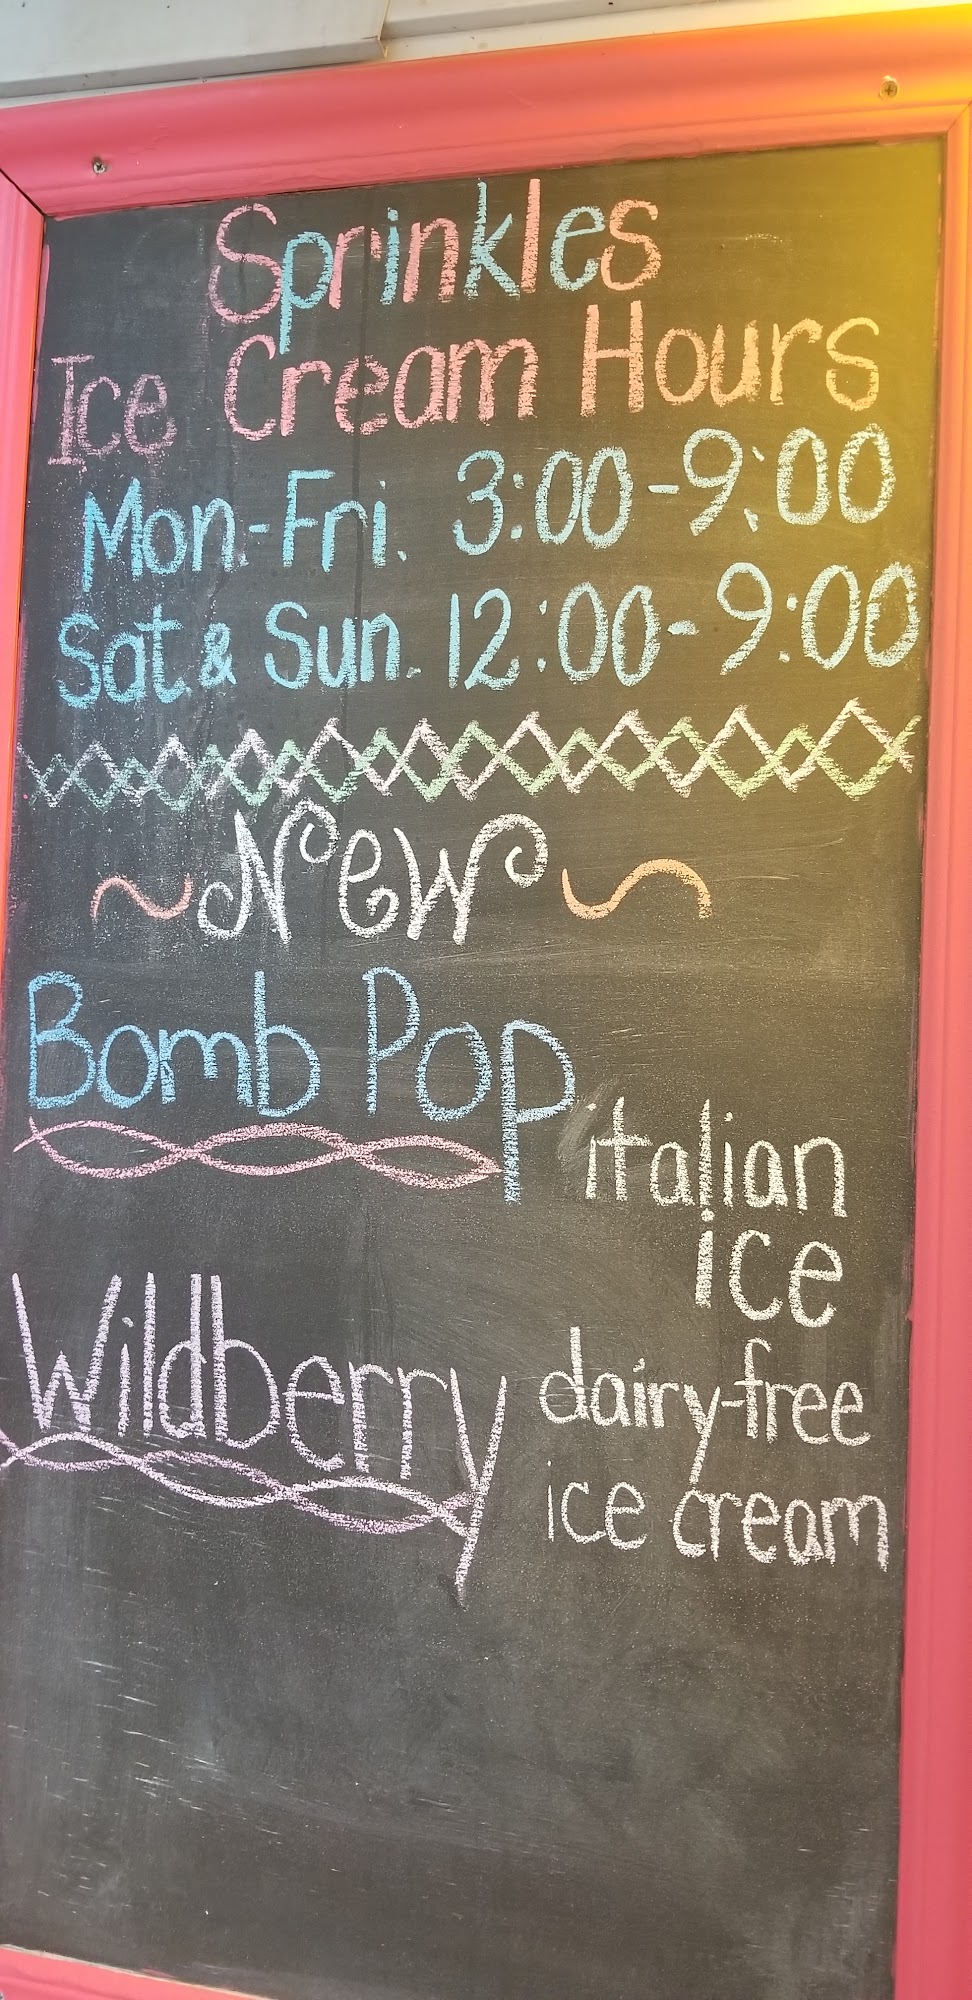 Sprinkles
Ice Cream Hours
Mon.-Fri. 3:00-9:00
Sat. & Sun. 12:00-9:00
~New~
Bomb Pop
italian
ice
Wildberry
dairy-free
ice cream